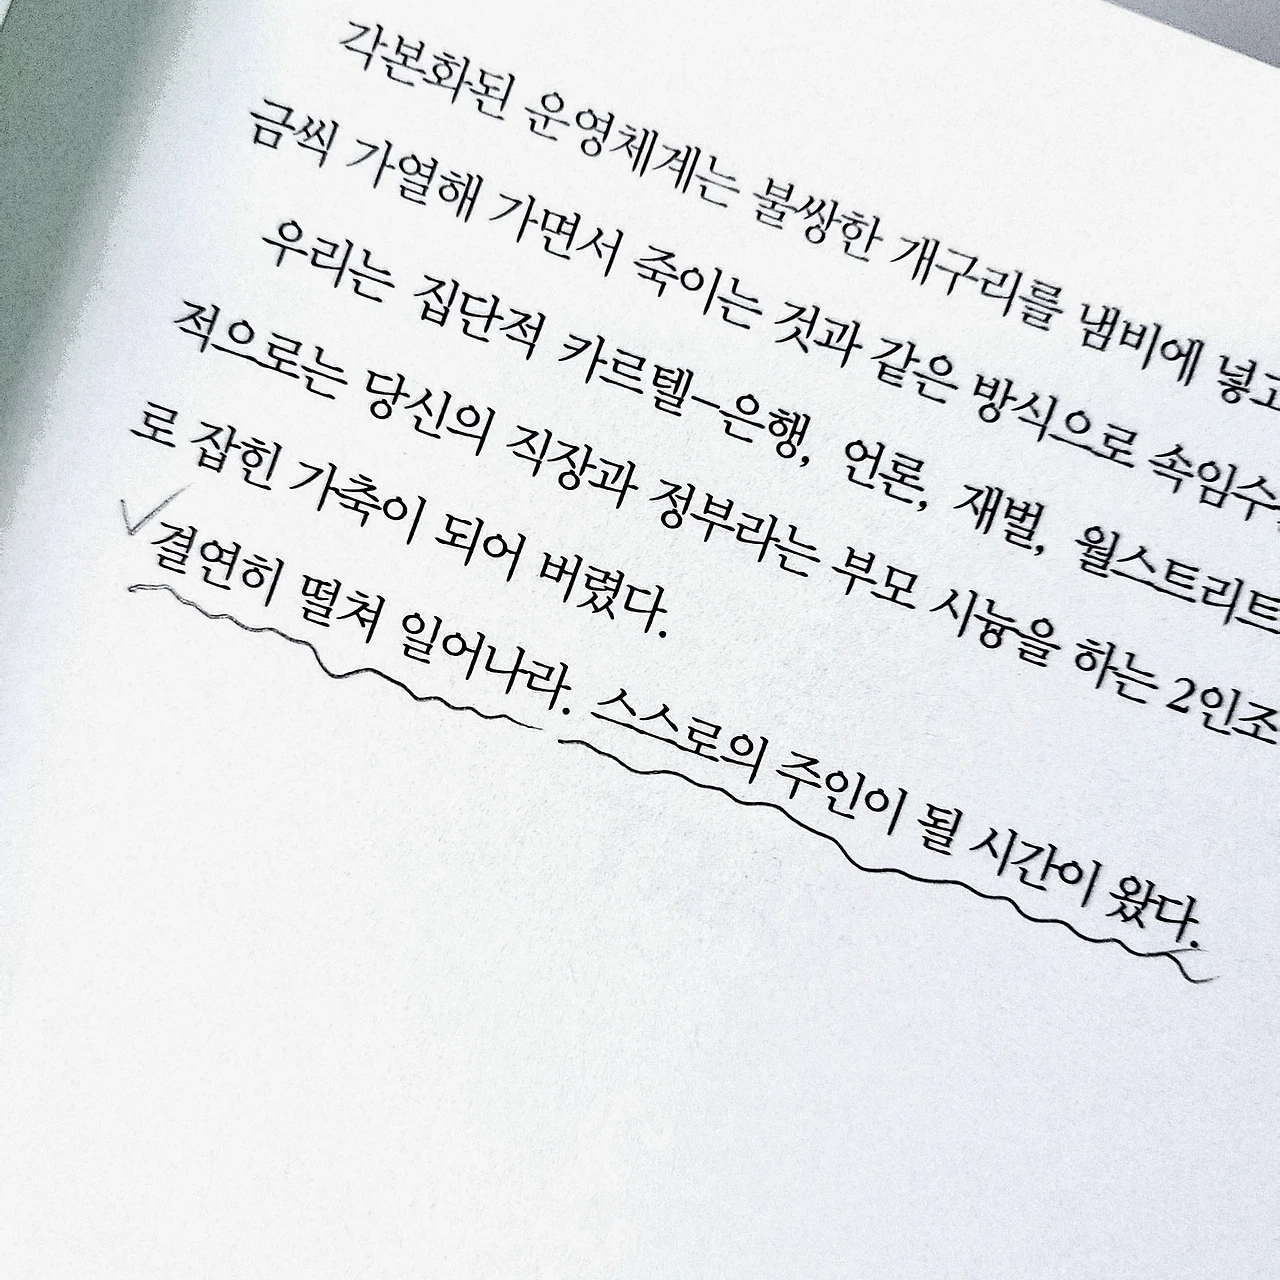 각본화된 운영체계는 불쌍한 개구리를 냄비에 넣고
금씩 가열해 가면서 죽이는 것과 같은 방식으로 속임수
우리는 집단적 카르텔-은행, 언론, 재벌, 월스트리트
적으로는 당신의 직장과 정부라는 부모 시늉을 하는 2인조
로 잡힌 가축이 되어 버렸다.
결연히 떨쳐 일어나라. 스스로의 주인이 될 시간이 왔다.